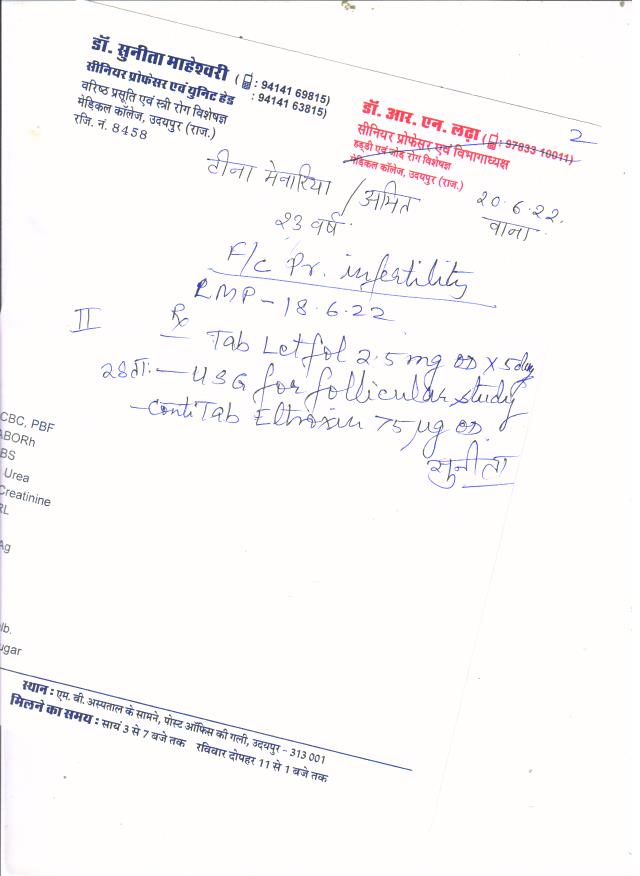 डॉ. सुनीता माहेश्वरी
सीनियर प्रोफेसर एवं युनिट हेड
वरिष्ठ प्रसूति एवं स्त्री रोग विशेषज्ञ
मेडिकल कॉलेज, उदयपुर (राज.)
रजि. नं. 8458
( : 94141 69815)
: 94141 63815)
डॉ. आर. एन. लढ़ा ( : 97833 10011)
सीनियर प्रोफेसर एवं विभागाध्यक्ष
हड्डी एवं जोड़ रोग विशेषज्ञ
मेडिकल कॉलेज, उदयपुर (राज.)
2
टीना मेनारिया / अमित
20.6.22.
23 वर्ष
वाना
F/c Pr. infertility
LMP - 18.6.22
II Rx
Tab Letfol 2.5mg OD X 5day
28ता:— USG for follicular study
-Conti Tab Eltroxin 75 µg OD.
सुनीता
CBC, PBF
ABORh
BS
Urea
Creatinine
RL
Ag
lb.
ugar
स्थान : एम. बी. अस्पताल के सामने, पोस्ट ऑफिस की गली, उदयपुर - 313 001
मिलने का समय : सायं 3 से 7 बजे तक रविवार दोपहर 11 से 1 बजे तक